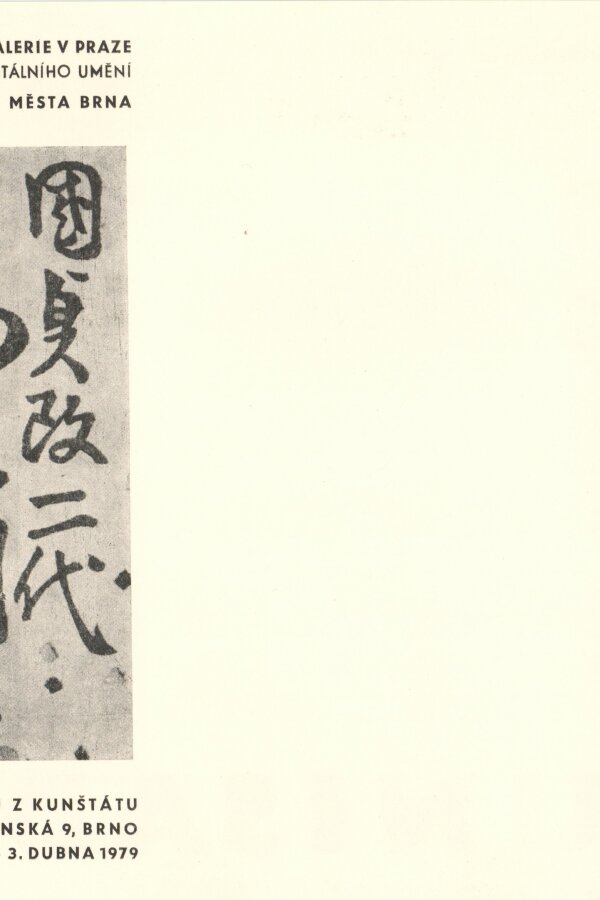 ALERIE V PRAZE
TÁLNÍHO UMĚNÍ
MĚSTA BRNA
國貞改二代
Z KUNŠTÁTU
NSKÁ 9, BRNO
3. DUBNA 1979